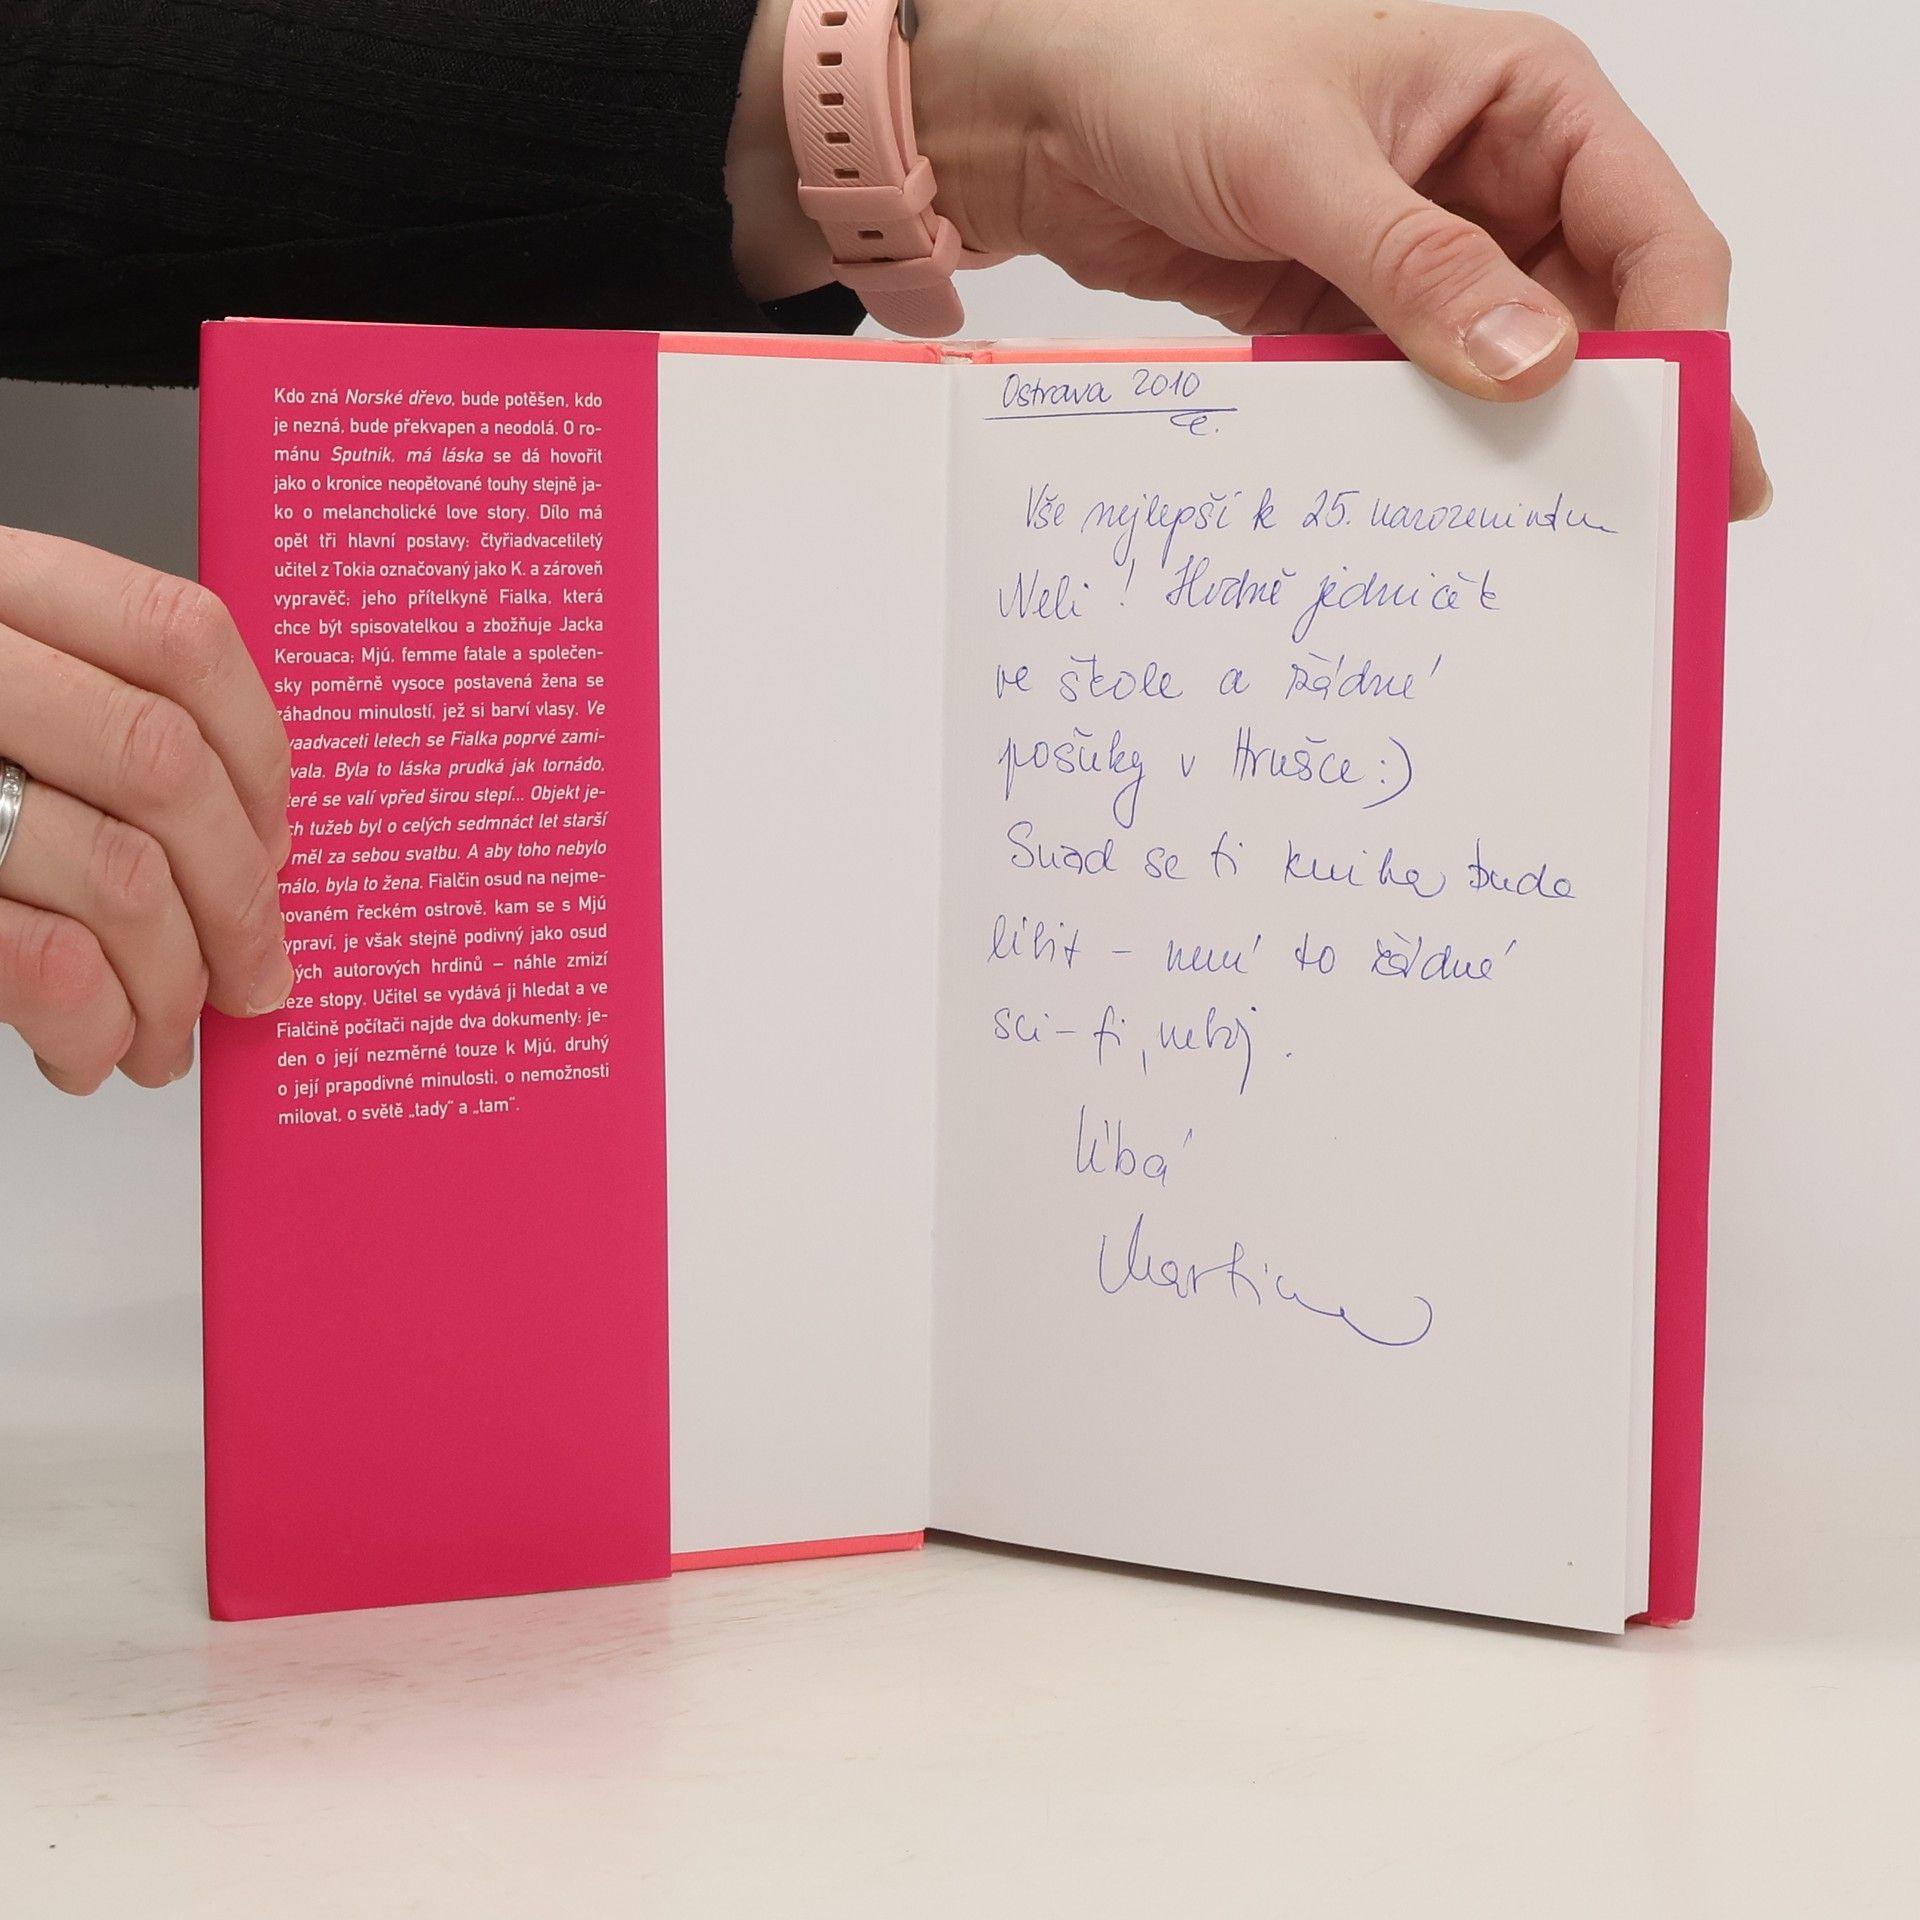 Kdo zná Norské dřevo, bude potěšen, kdo
je nezná, bude překvapen a neodolá. O ro-
mánu Sputnik, má láska se dá hovořit
jako o kronice neopětované touhy stejně ja-
ko o melancholické love story. Dílo má
opět tři hlavní postavy: čtyřiadvacetiletý
učitel z Tokia označovaný jako K. a zároveň
vypravěč; jeho přítelkyně Fialka, která
chce být spisovatelkou a zbožňuje Jacka
Kerouaca; Mjú, femme fatale a společen-
sky poměrně vysoce postavená žena se
záhadnou minulostí, jež si barví vlasy. Ve
vaadvaceti letech se Fialka poprvé zami-
vala. Byla to láska prudká jak tornádo,
teré se valí vpřed širou stepí... Objekt je-
ch tužeb byl o celých sedmnáct let starší
měl za sebou svatbu. A aby toho nebylo
málo, byla to žena. Fialčin osud na nejme-
novaném řeckém ostrově, kam se s Mjú
vypraví, je však stejně podivný jako osud
ných autorových hrdinů – náhle zmizí
beze stopy. Učitel se vydává ji hledat a ve
Fialčině počítači najde dva dokumenty: je-
den o její nezměrné touze k Mjú, druhý
o její prapodivné minulosti, o nemožnosti
milovat, o světě „tady“ a „tam“.
Ostrava 2010
Vše nejlepší k 25. narozeninám
Neli! Hodně jedniček
ve škole a žádné
pošuky v Hrušce :)
Snad se ti kniha bude
líbit – není to žádné
sci-fi, neboj.
líbá
Martina